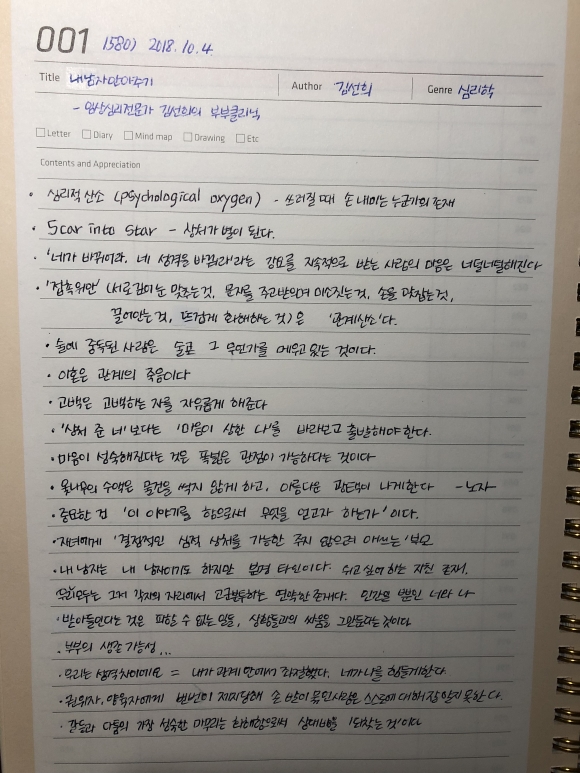 001 (580) 2018. 10. 4.
Title 내 남자 안아주기 Author 김선희 Genre 심리학
- 임상심리전문가 김선희의 부부클리닉
Letter Diary Mind map Drawing Etc
Contents and Appreciation
· 심리적 산소 (psychological oxygen) - 쓰러질 때 손 내미는 누군가의 존재
· Scar into Star - 상처가 별이 된다.
· '네가 바뀌어라, 네 성격을 바꿔라'라는 강요를 지속적으로 받는 사람의 마음은 너덜너덜해진다
· '접촉위안' (서로 깊이 눈 맞추는 것, 문자를 주고받으며 미소짓는 것, 손을 맞잡는 것,
끌어안는 것, 뜨겁게 화해하는 것)은 '관계산소'다.
· 술에 중독된 사람은 술로 그 무언가를 메우고 있는 것이다.
· 이혼은 관계의 죽음이다
· 고백은 고백하는 자를 자유롭게 해준다
· '상처 준 너'보다는 '마음이 상한 나'를 바라보고 출발해야 한다.
· 마음이 성숙해진다는 것은 폭넓은 관점이 가능하다는 것이다
· 옻나무의 수액은 물건을 썩지 않게 하고, 아름다운 광택이 나게 한다 - 노자
· 중요한 건 '이 이야기를 함으로써 무엇을 얻고자 하는가'이다.
· 자녀에게 '결정적인 심적 상처를 가능한 주지 않으려 애쓰는' 부모
· 내 남자는 내 남자이기도 하지만 분명 타인이다. 쉬고 싶어 하는 지친 존재.
우리 모두는 그저 각자의 자리에서 고군분투하는 연약한 존재다. 인간일 뿐인 너와 나
· 받아들인다는 것은 피할 수 없는 일들, 상황들과의 싸움을 그만둔다는 것이다
· 부부의 생존 가능성...
· 우리는 성격차이예요 = 내가 관계 안에서 좌절했다. 네가 나를 힘들게 한다.
· 권위자, 양육자에게 번번이 제지당해 손 발이 묶인 사람은 스스로에 대해 잘 알지 못한다.
· 갈등과 다툼의 가장 성숙한 마무리는 화해함으로써 상대방을 '되찾는 것'이다